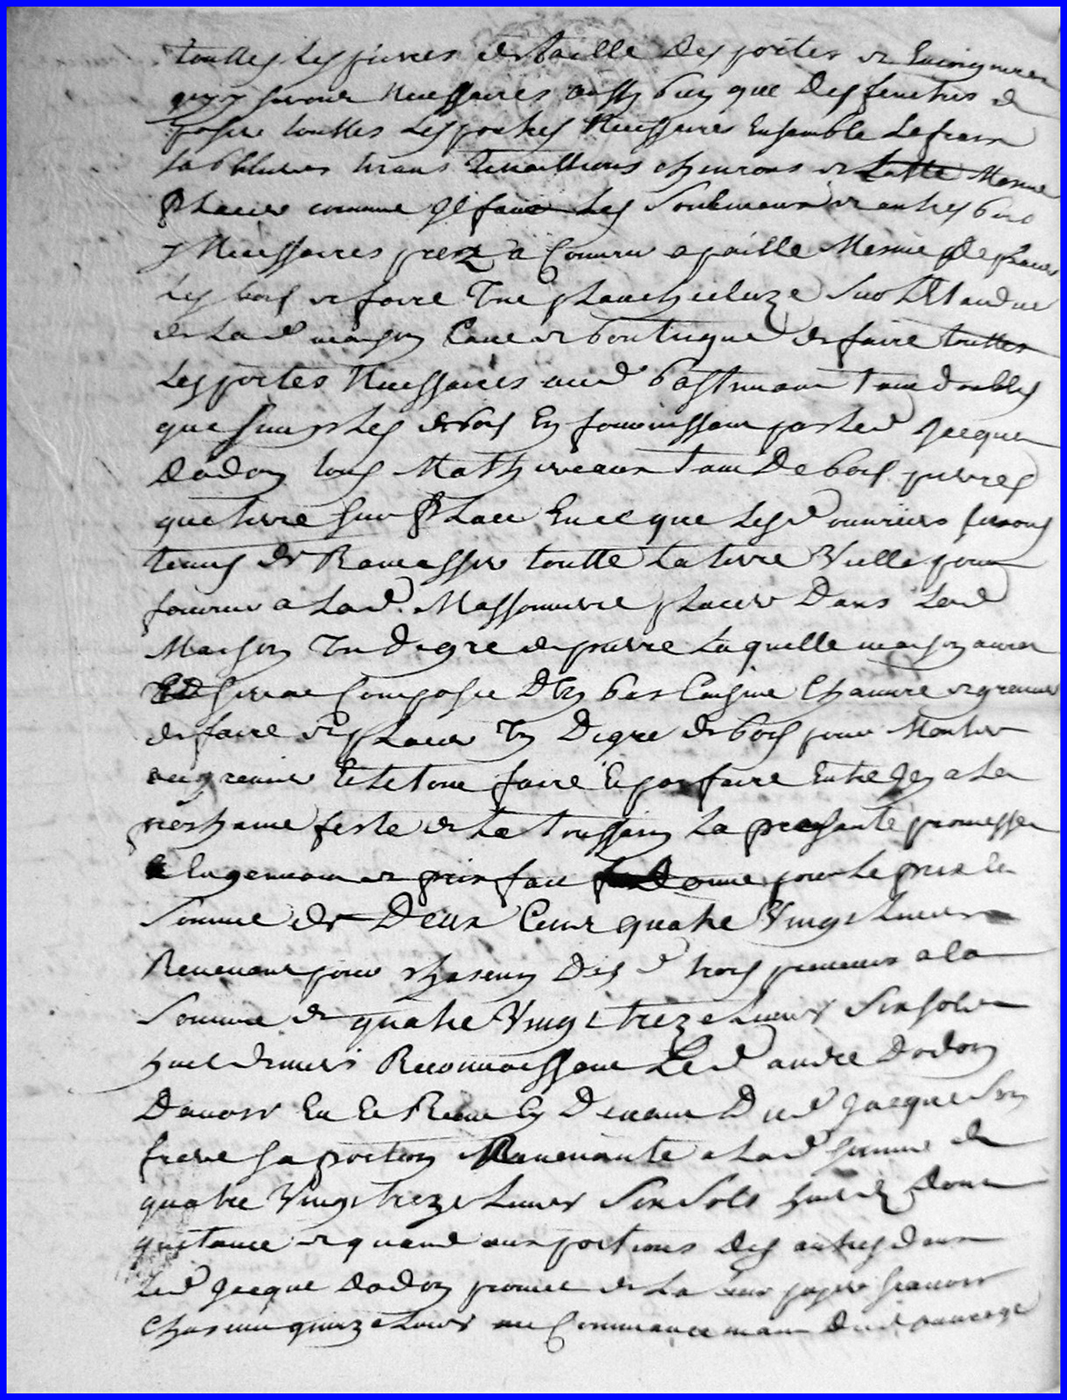 touttes les pierres de taille des portes et
quy y seront necessaires aussy bien que des fenetres et
poser touttes les portes necessaires ensemble le
tirans chevrons et latte mesme
placer comme il faut les et autres bois
y necessaires prest a couvrir a paille mesme de placer
les bois et faire une sur
de lad maison cave et boutique de faire touttes
les portes necessaires aud bastimant tant doubles
que simples de bois en fournissant par led Jacque
Dodon tous Mathereaux tant de bois pierres
que terre sur place en ce que lesd ouvriers seront
tenus de Ramasser toutte la terre Vielle pour
fournir a lad. Massonnerie placer dans lad
Maison un degre de pierre laquelle maison aura
et sera composée d'un bas cuisine chambre et grenier
de faire et placer un degre de bois pour Monter
au grenier et le tout faire et parfaire entre icy a la
prochaine feste de la toussain la presante promesse
et prix fait donné pour le prix et
somme de Deux Cent quatre Vingt livres
Revenant pour chascun desd trois preneurs a la
somme de quatre Vingt treze livres six sols
huit deniers Reconnoissant led andre Dodon
Davoir eu et Receu cy Devant Dud Jacque son
frere sa portion Revenante a lad somme de
quatre Vingt treze livres six sols huit d dont
quitance et quand aux portions des autres deux
led Jacque Dodon promet de la leur payer scavoir
chascun quinze livres au Commancemant dud ouvrage